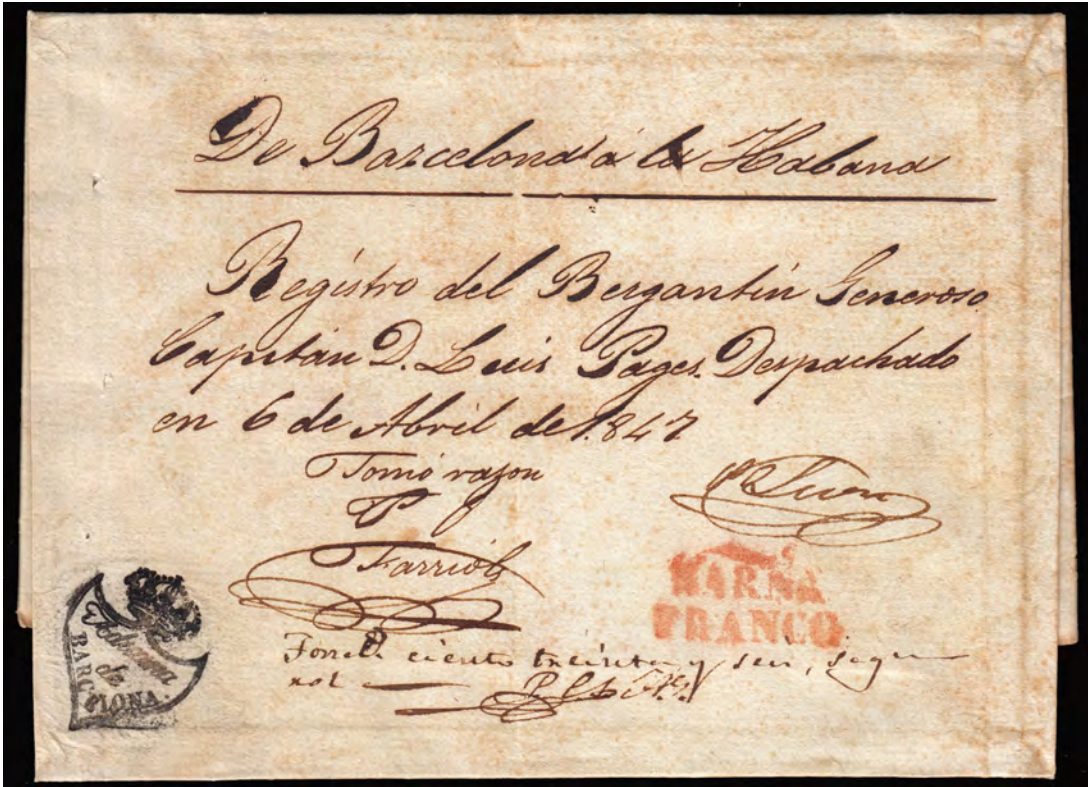 De Barcelona á la Habana
Registro del Bergantin Generoso
Capitán D. Luis Pages. Despachado
en 6 de Abril de 1.847
Tomó razon
Farriols
BARNA
FRANCO
Aduana
de
BARCELONA.
ciento treinta y seis, segun